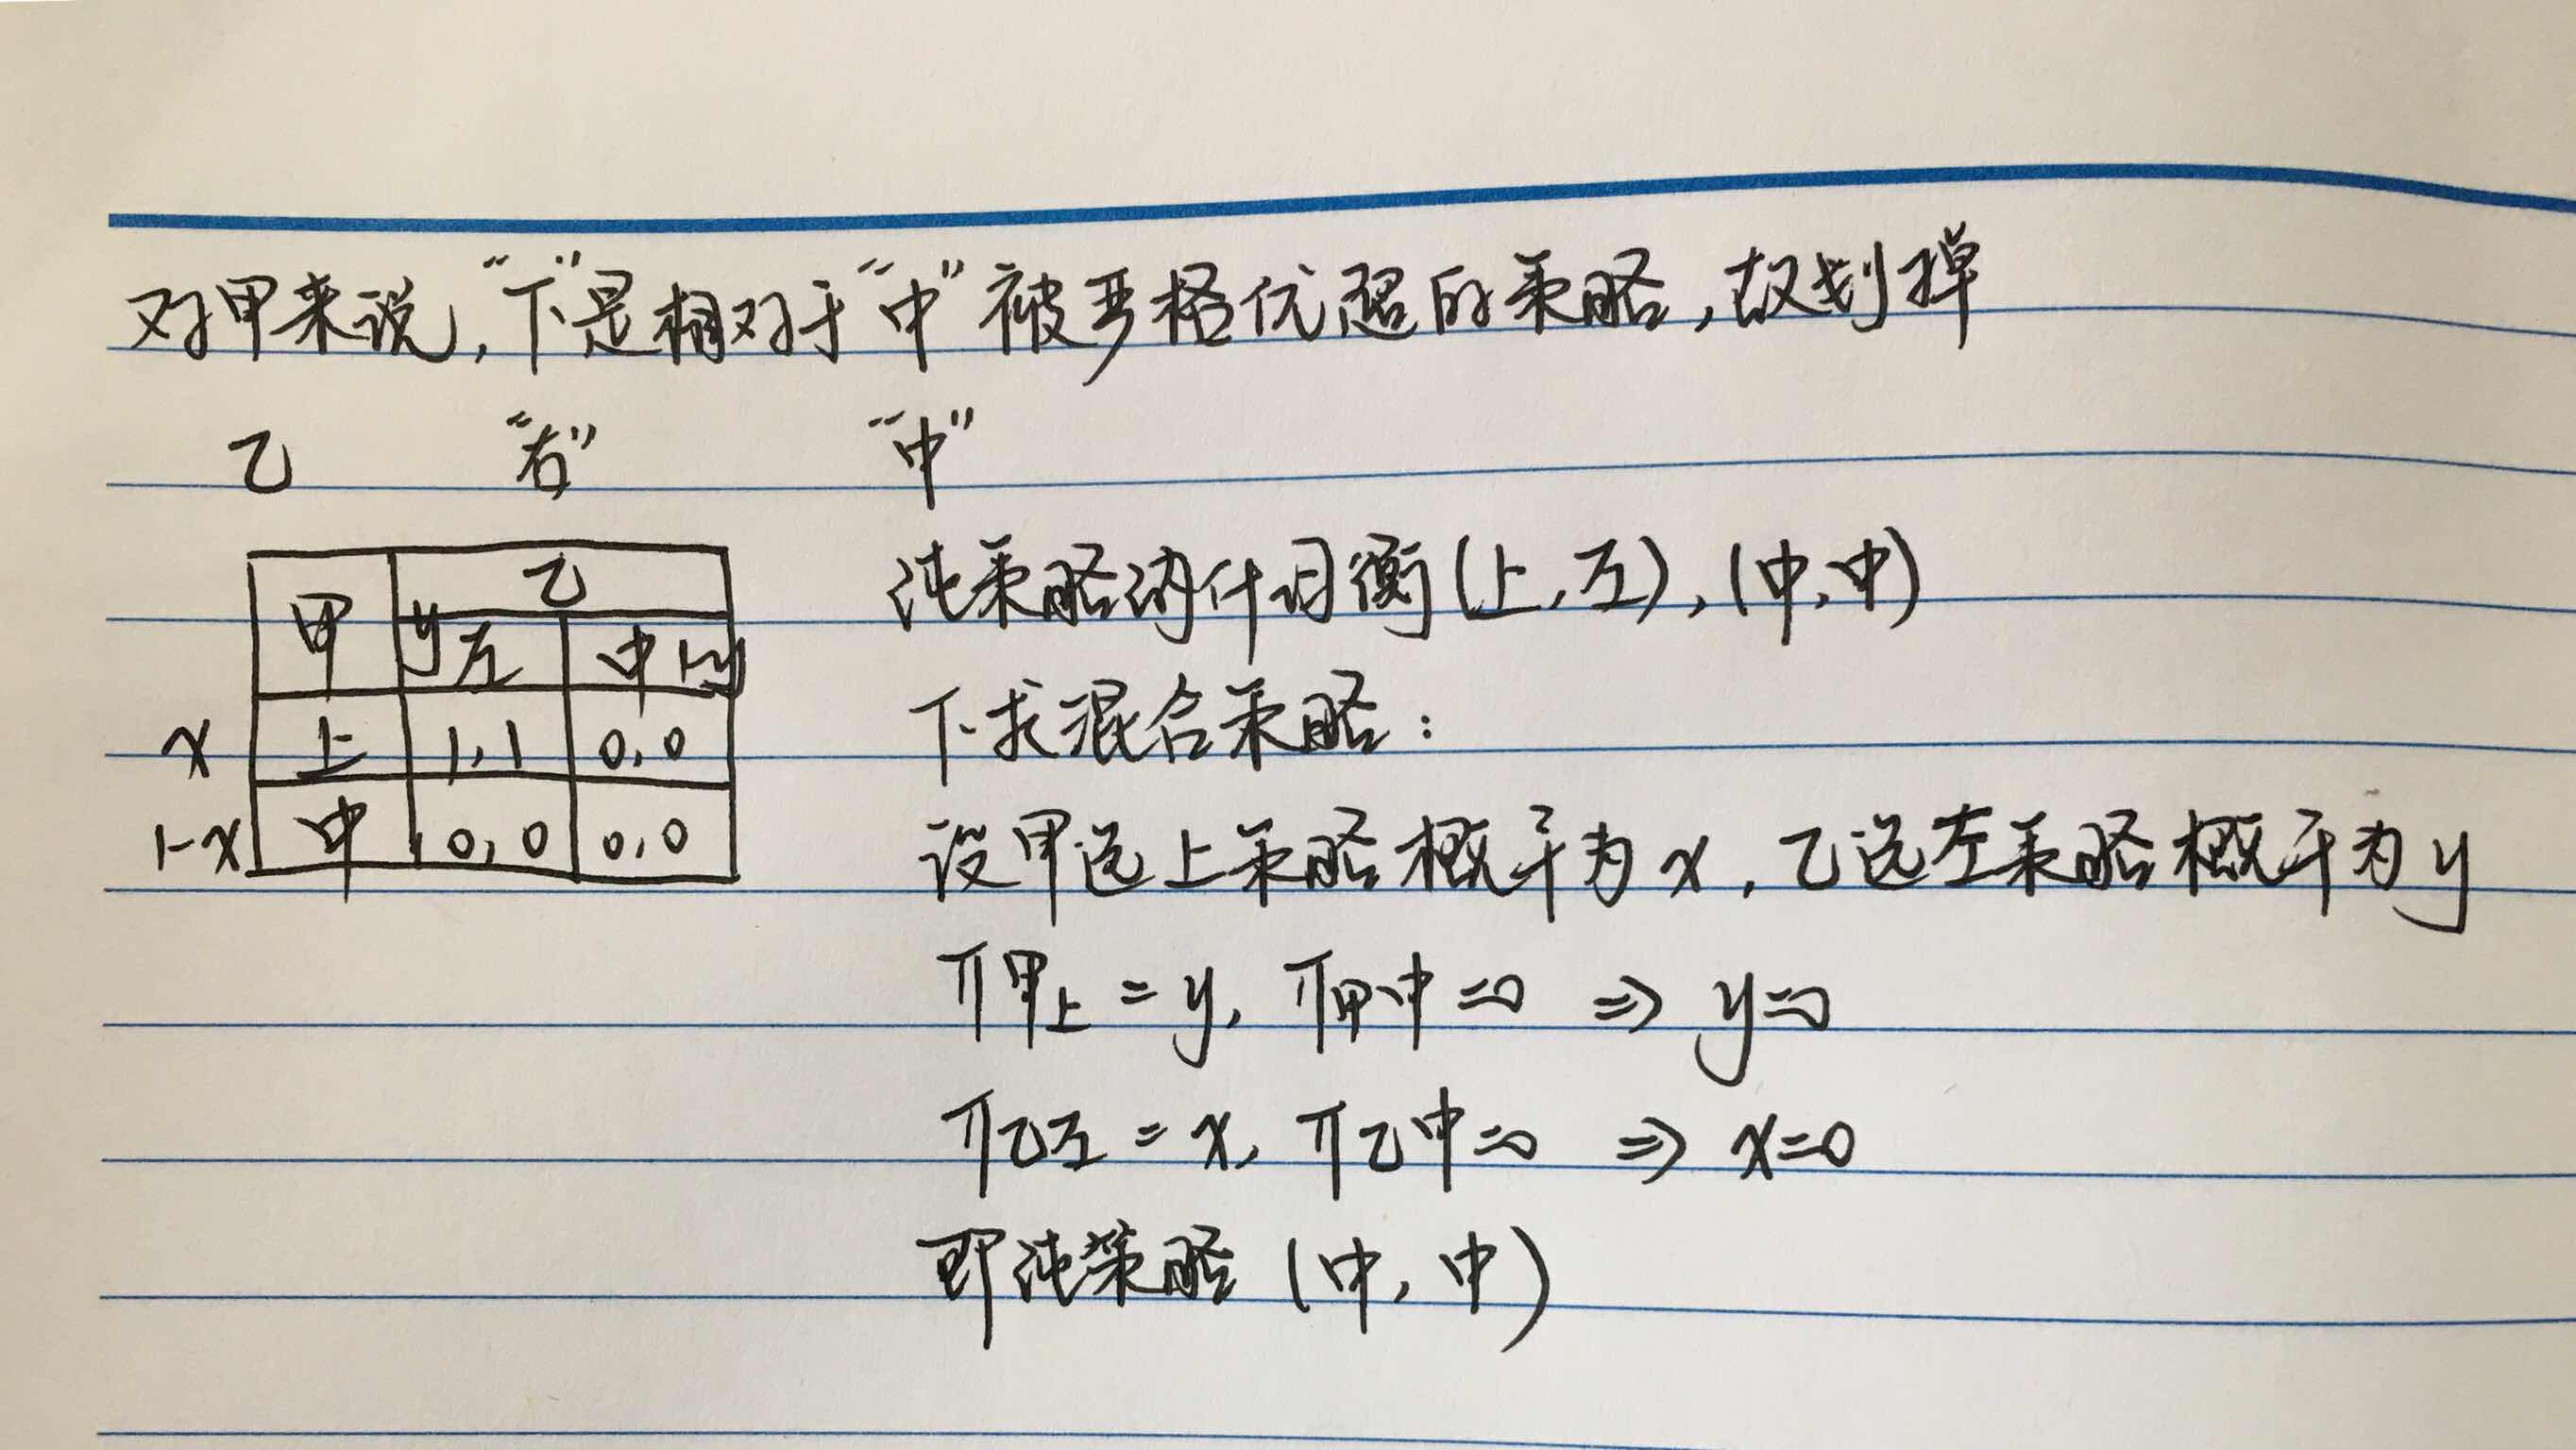 对甲来说,“下”是相对于“中”被严格优超的策略,故划掉
乙 “右” “中”
纯策略纳什均衡(上,左),(中,中)
甲 乙
y 左 中 1-y
x 上 1,1 0,0
1-x 中 0,0 0,0
下求混合策略:
设甲选上策略概率为x,乙选左策略概率为y
π甲上=y, π甲中=0 ⇒ y=0
π乙左=x, π乙中=0 ⇒ x=0
即纯策略(中,中)